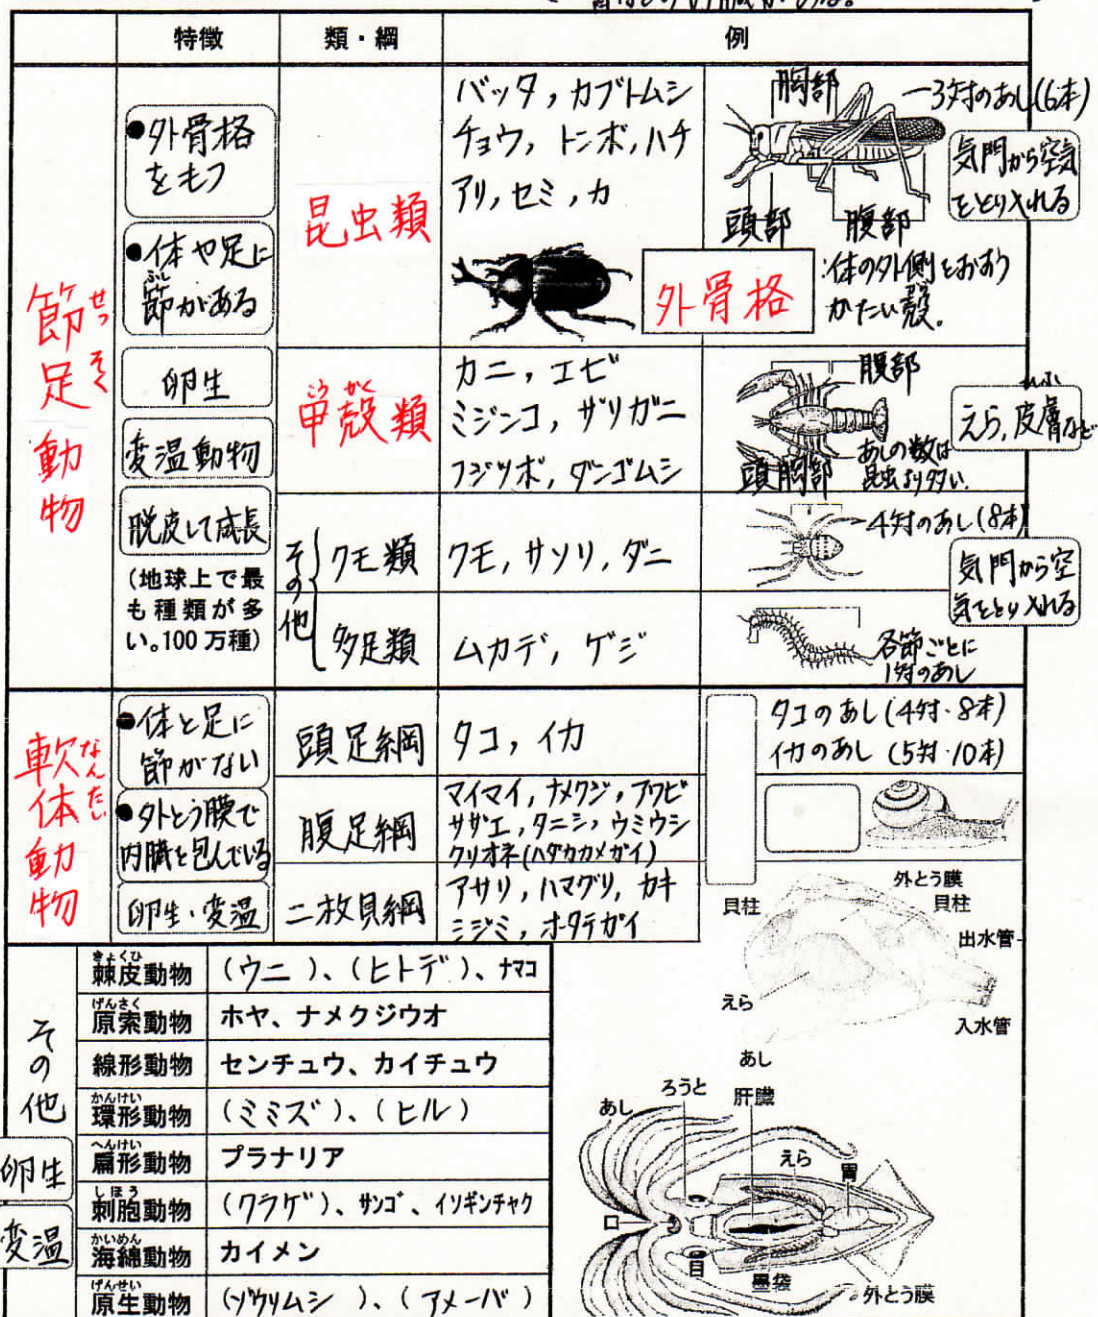 特徴 類・綱 例
節足動物
せっそく
●外骨格
をもつ
●体や足に
節がある
ふし
卵生
変温動物
脱皮して成長
(地球上で最
も種類が多
い。100万種)
昆虫類
バッタ，カブトムシ
チョウ，トンボ，ハチ
アリ，セミ，カ
胸部
3対のあし(6本)
気門から空気
をとり入れる
頭部
腹部
外骨格
：体の外側をおおう
かたい殻。
甲殻類
こうかく
カニ，エビ
ミジンコ，ザリガニ
フジツボ，ダンゴムシ
腹部
頭胸部
あしの数は
昆虫より多い．
えら，皮膚など
その他
クモ類
クモ，サソリ，ダニ
4対のあし(8本)
気門から空
気をとり入れる
多足類
ムカデ，ゲジ
各節ごとに
1対のあし
軟体動物
なんたい
●体と足に
節がない
●外とう膜で
内臓を包んでいる
卵生・変温
頭足綱
タコ，イカ
タコのあし(4対・8本)
イカのあし(5対・10本)
腹足綱
マイマイ，ナメクジ，アワビ
サザエ，タニシ，ウミウシ
クリオネ(ハダカカメガイ)
二枚貝綱
アサリ，ハマグリ，カキ
シジミ，ホタテガイ
外とう膜
貝柱
貝柱
出水管
えら
入水管
あし
その他
卵生
変温
きょくひ
棘皮動物 (ウニ)、(ヒトデ)、ナマコ
げんさく
原索動物 ホヤ、ナメクジウオ
線形動物 センチュウ、カイチュウ
かんけい
環形動物 (ミミズ)、(ヒル)
へんけい
扁形動物 プラナリア
しほう
刺胞動物 (クラゲ)、サンゴ、イソギンチャク
かいめん
海綿動物 カイメン
げんせい
原生動物 (ゾウリムシ)、(アメーバ)
あし
ろうと
肝臓
えら
胃
口
目
墨袋
外とう膜